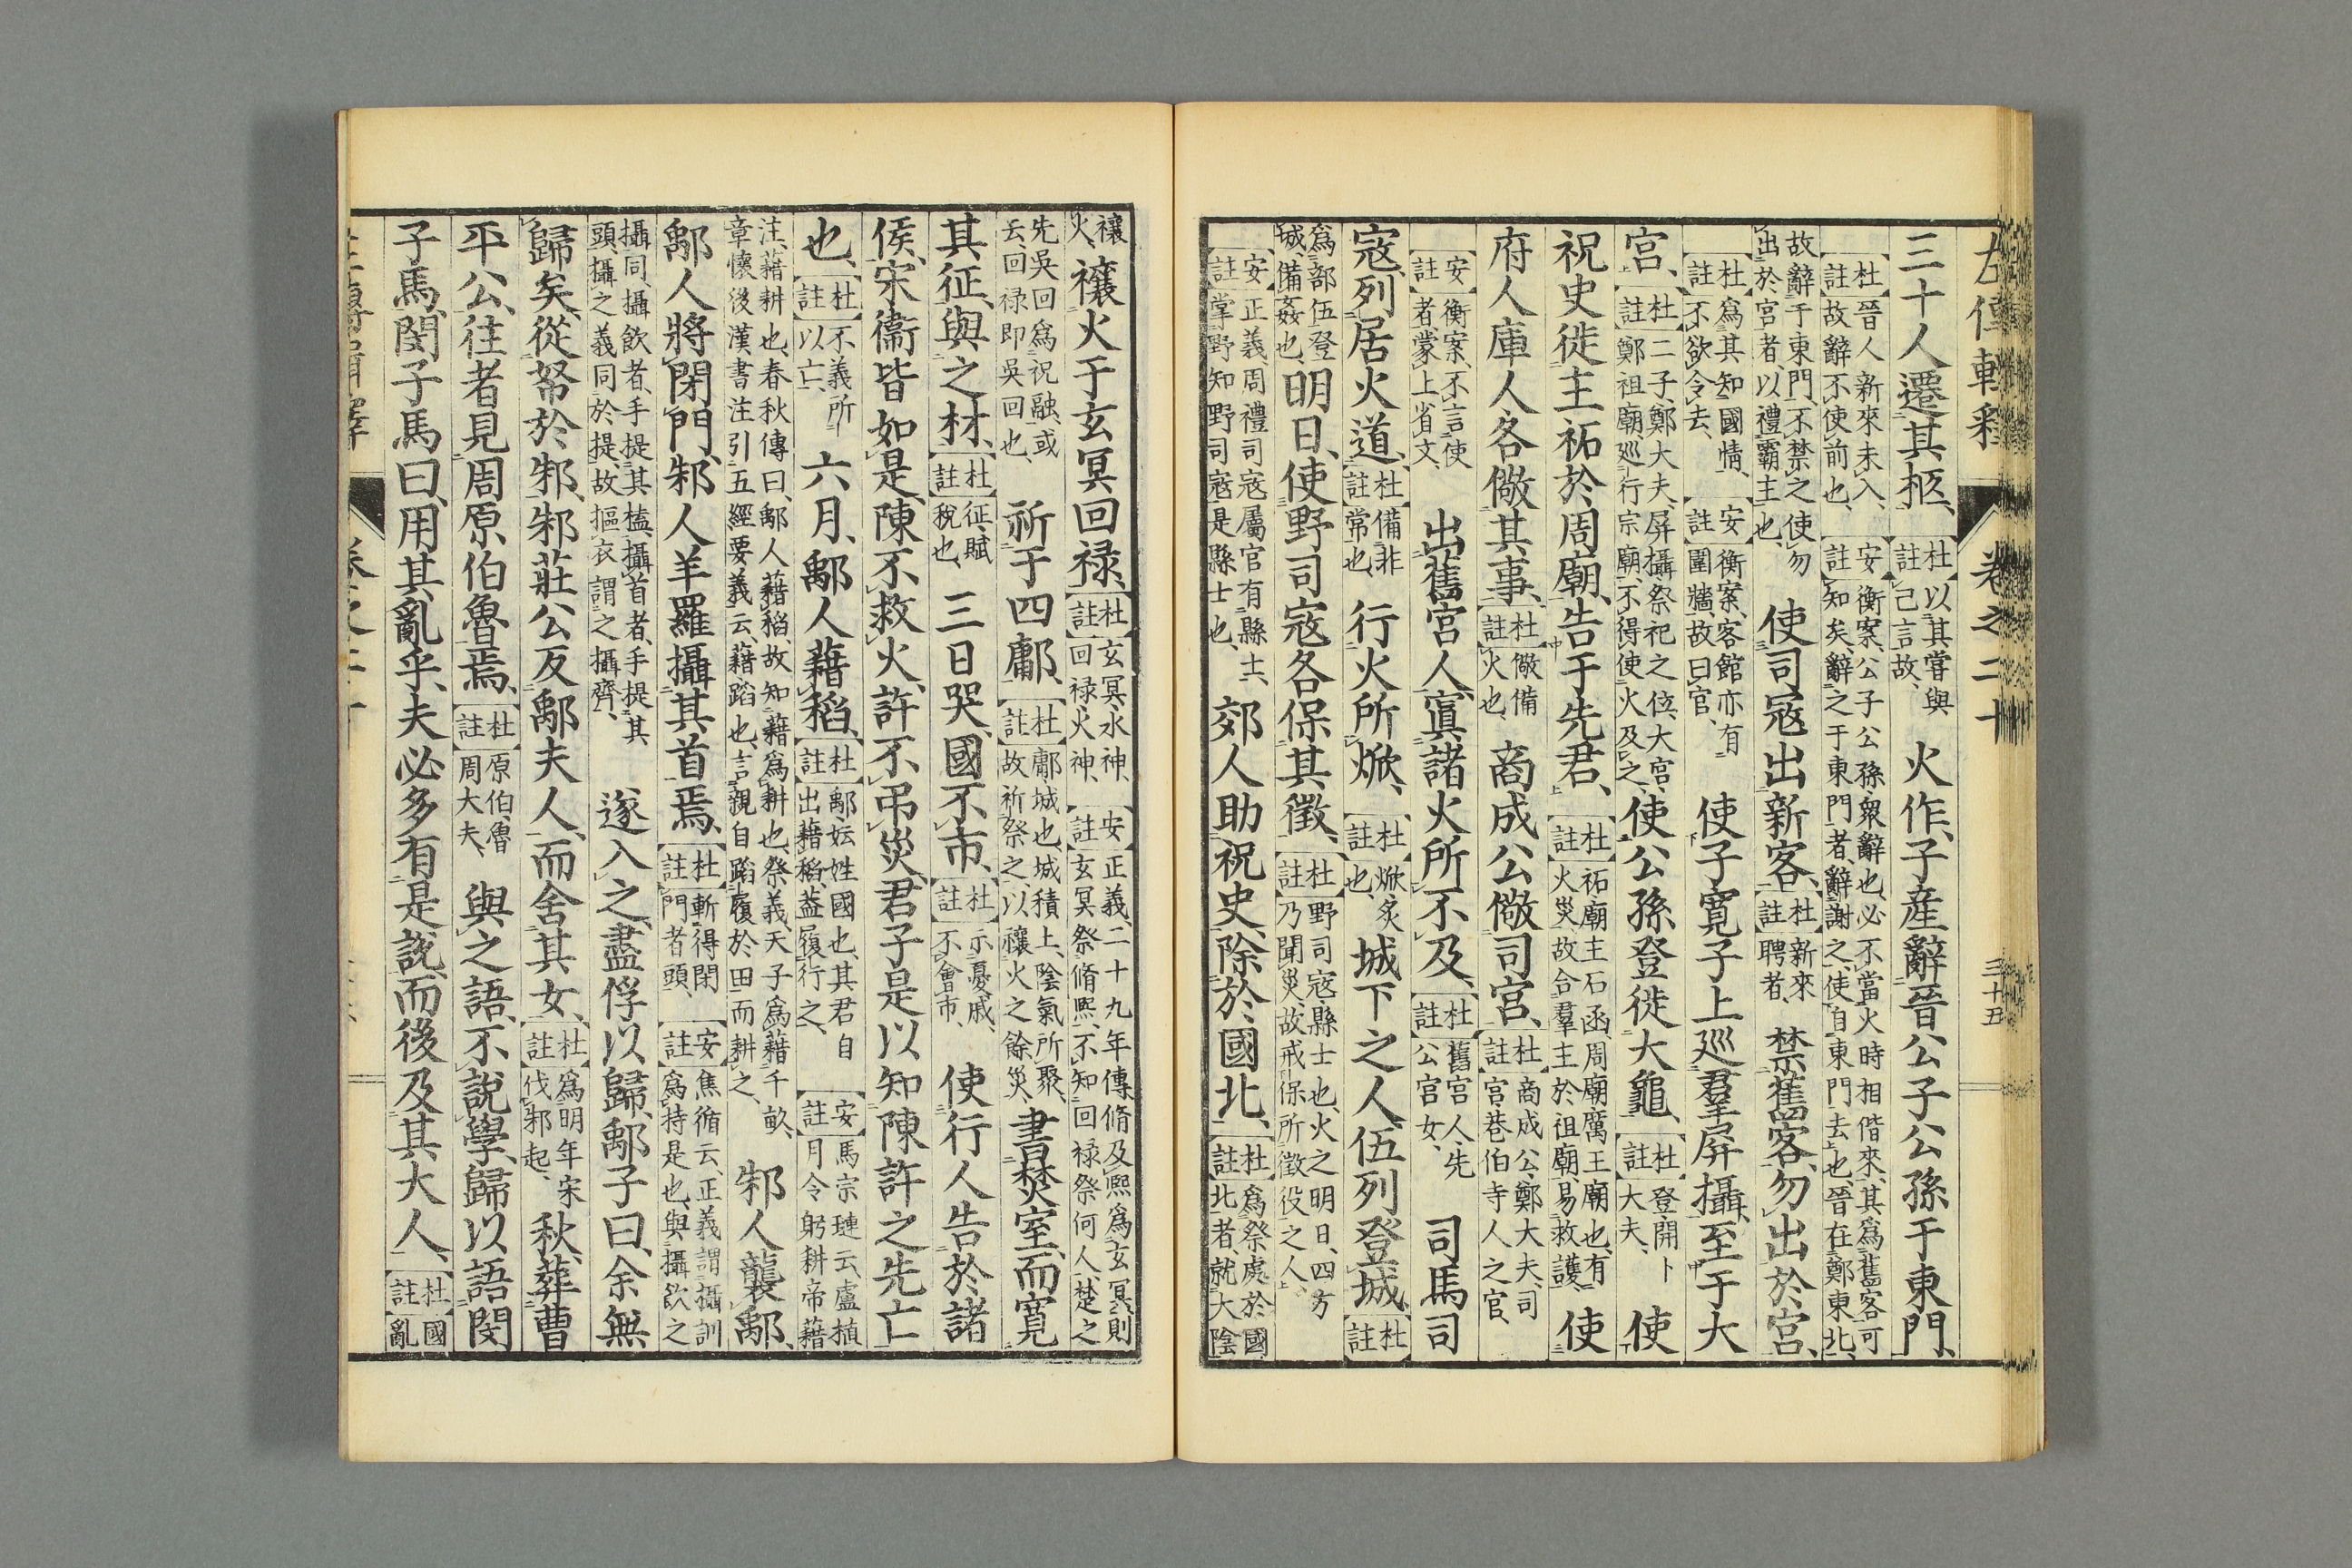 左傳輯釋 卷之二十 三十五
三十人遷其柩、杜註以其嘗與己言故、火作、子産辭晉公子公孫于東門、
杜註晉人新來未入、故辭不使前也、安註衡案、公子公孫衆辭也、必不當火時相偕來、其爲舊客可知矣、辭之于東門者、辭謝之、使自東門去也、晉在鄭東北、
故辭于東門、不禁之使勿出於宮者、以禮霸主也、使司寇出新客、杜註新來聘者、禁舊客、勿出於宮、
杜註爲其知國情、不欲令去、安註衡案、客館亦有圍牆、故曰宮、使子寛子上巡羣屏攝、至于大
宮、杜註二子、鄭大夫、屏攝、祭祀之位、大宮、鄭祖廟、巡行宗廟、不得使火及之、使公孫登徙大龜、杜註登、開卜大夫、使
祝史徙主祏於周廟、告于先君、杜註祏廟主石函、周廟厲王廟也、有火災故合羣主於祖廟、易救護、使
府人庫人各儆其事、杜註儆備火也、商成公儆司宮、杜註商成公、鄭大夫、司宮、巷伯寺人之官、
安註衡案、不言使者、蒙上省文、出舊宮人、寘諸火所不及、杜註舊宮人、先公宮女、司馬司
寇列居火道、杜註備非常也、行火所焮、杜註焮炙也、城下之人、伍列登城、杜註
爲部伍登城、備姦也、明日、使野司寇各保其徵、杜註野司寇、縣士也、火之明日、四方乃聞災、故戒保所徵役之人、
安註正義、周禮司寇屬官有縣士、掌野、知野司寇是縣士也、郊人助祝史、除於國北、杜註爲祭處於國北者、就大陰
禳火、禳火于玄冥回禄、杜註玄冥、水神、回禄火神、安註正義、二十九年傳、脩及熙爲玄冥、則玄冥祭脩熙、不知回禄祭何人、楚之
先呉回爲祝融、或云、回禄即呉回也、祈于四鄘、杜註鄘城也、城積土、陰氣所聚、故祈祭之、以禳火之餘災、書焚室、而寛
其征、與之材、杜註征、賦税也、三日哭、國不市、杜註示憂戚、不會市、使行人告於諸
侯、宋衞皆如是、陳不救火、許不弔災、君子是以知陳許之先亡
也、杜註不義所以亡、六月、鄅人藉稻、杜註鄅、妘姓國也、其君自出藉稻、葢履行之、安註馬宗璉云、盧植月令躬耕帝藉
注、藉耕也、春秋傳曰、鄅人藉稻、故知藉爲耕也、祭義、天子爲藉千畝、章懷後漢書注引五經要義云、藉蹈也、言親自蹈履於田而耕之、邾人襲鄅、
鄅人將閉門、邾人羊羅攝其首焉、杜註斬得閉門者頭、安註焦循云、正義謂攝訓爲持是也、與攝飮之
攝同、攝飮者、手提其榼、攝首者、手提其頭、攝之義同於提、故摳衣謂之攝齊、遂入之、盡俘以歸、鄅子曰、余無
歸矣、從帑於邾、邾莊公反鄅夫人、而舍其女、杜註爲明年宋伐邾起、秋、葬曹
平公、往者見周原伯魯焉、杜註原伯魯、周大夫、與之語、不説學、歸以語閔
子馬、閔子馬曰、用其亂乎、夫必多有是説、而後及其大人、杜註國亂
卷之二十